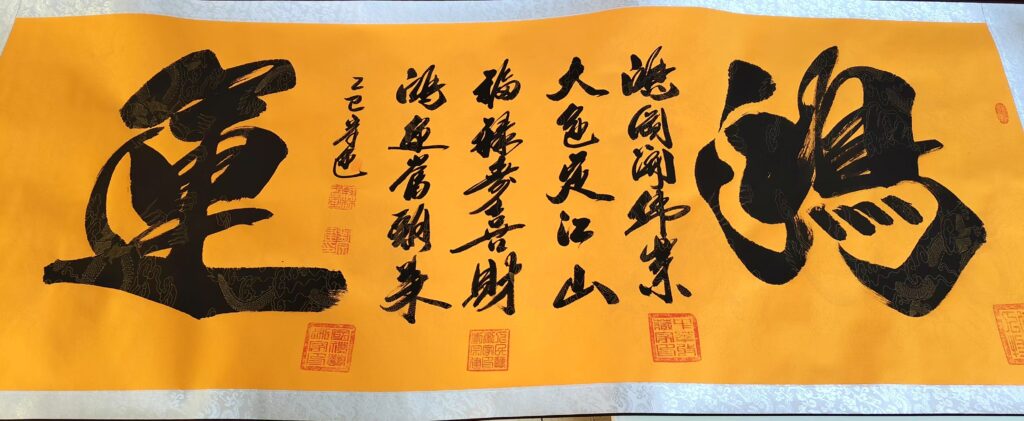 鴻
鴻圖開偉業
大定江山
福祿壽喜財
鴻運當頭來
乙巳
運